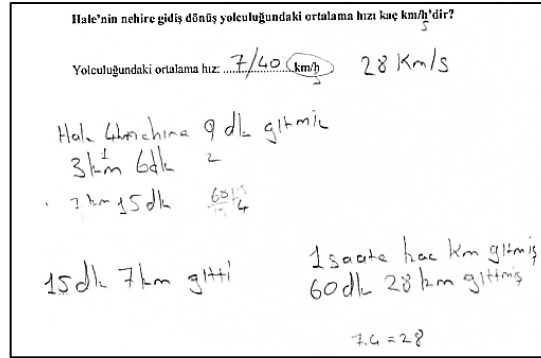 Hale'nin nehire gidiş dönüş yolculuğundaki ortalama hızı kaç km/h'dir?
s
Yolculuğundaki ortalama hız: 7/40 km/h 28 Km/s
s
Hale 4km nehire 9 dk gitmiş
3km 6dk
7 km 15 dk 60 4
15 dk 7 km gitti
1 saate kac Km gitmiş
60 dk 28 km gittmiş
7.4 = 28